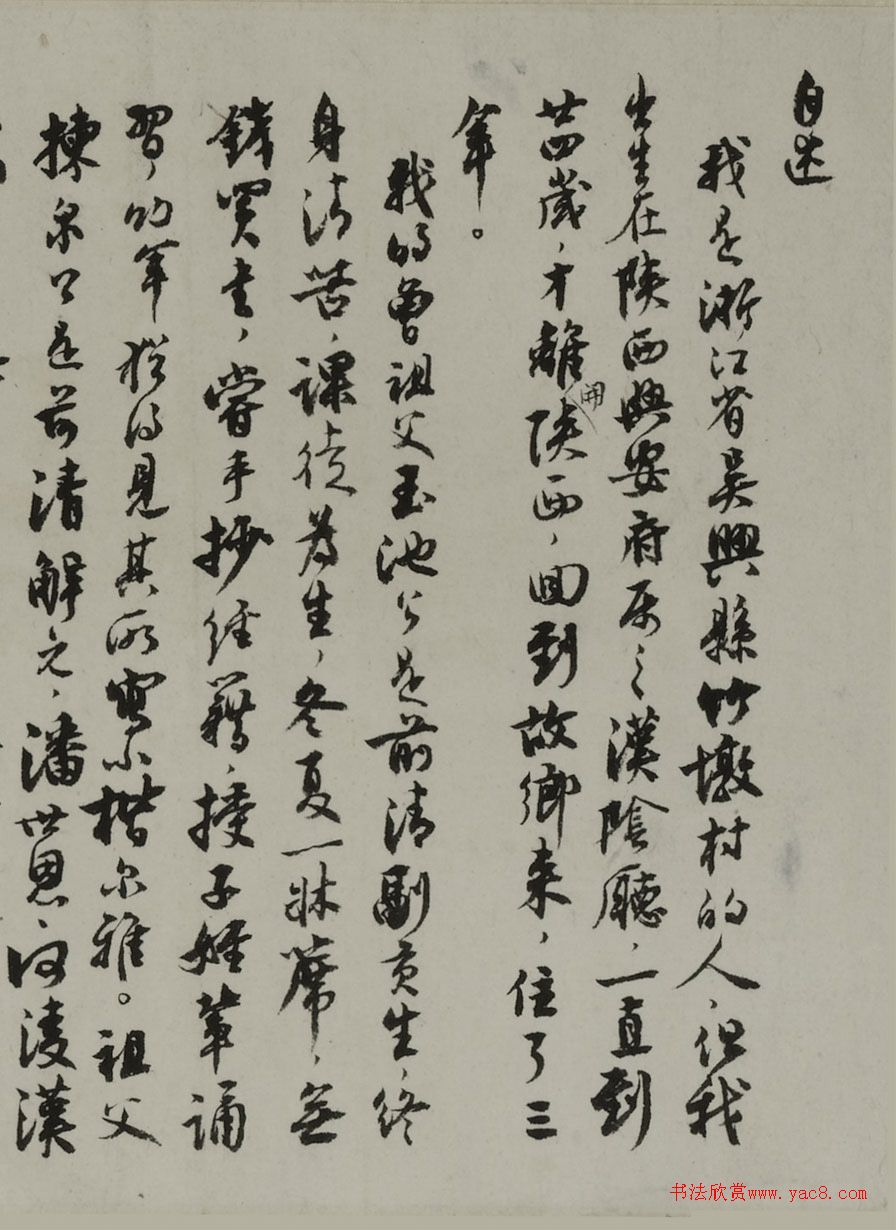 自述
我是浙江省吳興縣竹墩村的人，但我
出生在陝西興安府屬之漢陰廳，一直到
廿四歲，才離開陝西，回到故鄉来，住了三
年。
我的曾祖父玉池公是前清副貢生，終
身清苦，課徒為生，冬夏一牀席，無
錢買書，嘗手抄經籍，授子姪輩誦
習，幼年猶得見其所寫小楷尔雅。祖父
揀泉公是前清解元，潘世恩、何淩漢
书法欣赏www.yac8.com